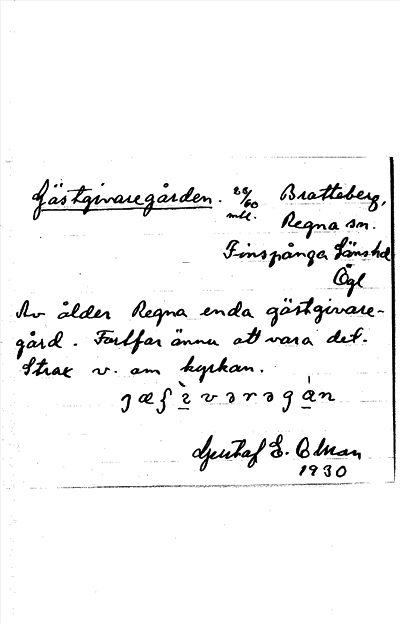 Gästgivaregården. 28/60 mtl. Bratteberg,
Regna sn.
Finspånga länshd
Ögl
Av ålder Regna enda gästgivare-
gård. Fortfar ännu att vara det.
Strax v. om kyrkan.
Gustaf E.
1930